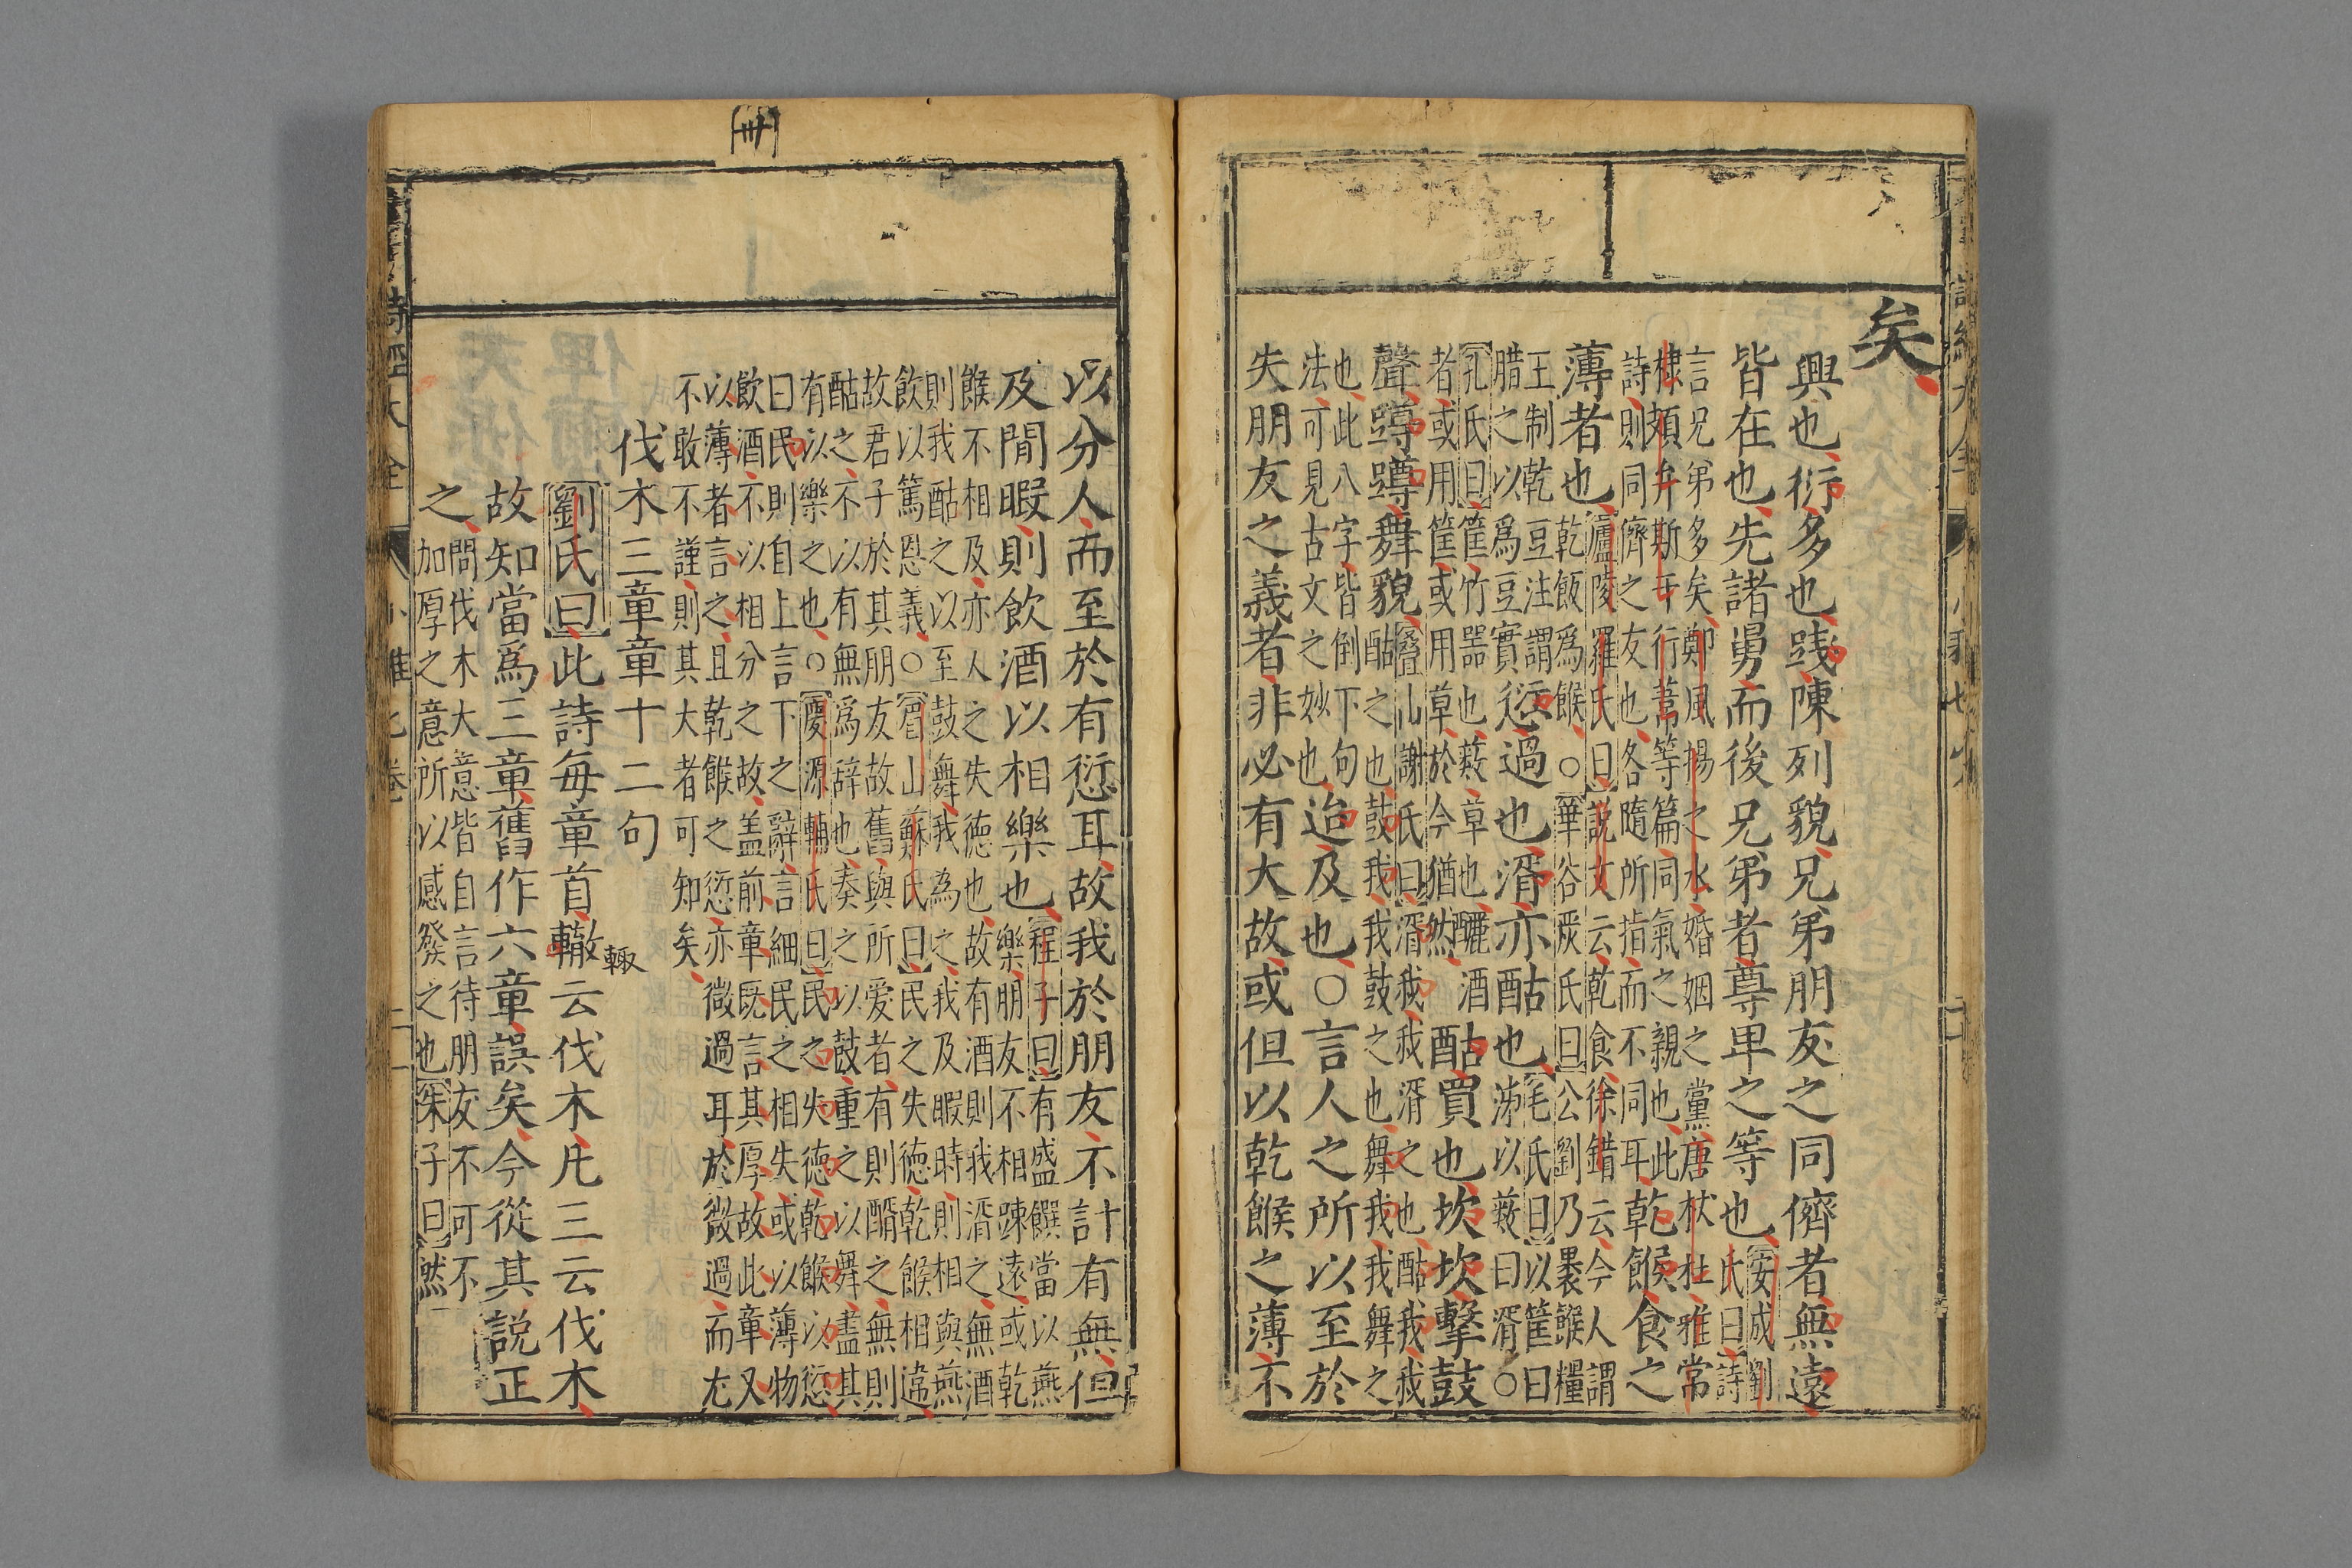 矣
興也衍多也踐陳列貌兄弟朋友之同儕者無遠
皆在也先諸舅而後兄弟者尊卑之等也
安成劉
氏曰詩
言兄弟多矣鄭風揚之水婚姻之黨唐杕杜雅常
棣頍弁斯干行葦等篇同氣之親也此
詩則同儕之友也各隨所指而不同耳
乾餱食之
薄者也
廬陵羅氏曰說文云乾食徐錯云今人謂
乾飯爲餱○華谷嚴氏曰公劉乃裹餱糧
王制乾豆注謂
腊之以爲豆實
愆過也湑亦酤也
毛氏曰以筐曰
以藪曰湑○
孔氏曰筐竹器也藪草也釃酒
者或用筐或用草於今猶然
酤買也坎坎擊鼓
聲蹲蹲舞貌
疊山謝氏曰湑我我湑之也酤我我
酤之也鼓我我鼓之也舞我我舞之
也此八字皆倒下句
法可見古文之妙也
迨及也○言人之所以至於
失朋友之義者非必有大故或但以乾餱之薄不
以分人而至於有愆耳故我於朋友不計有無但
及閒暇則飲酒以相樂也
程子曰有盛饌當以燕
樂朋友不相踈遠或乾
餱不相及亦人之失德也故有酒則我湑之無酒
則我酤之以至鼓舞我為之我及暇時則相與燕
飲以篤恩義○眉山蘇氏曰民之失德乾餱相違
故君子於其朋友故舊與所爱者有則醑之無則
酤之不以有無爲辞也奏之以鼓重之以舞盡其
有以樂之也○慶源輔氏曰民之失德乾餱以愆
曰民則自上言下之辭言細民之相失或以薄物
飲酒不以相分之故盖前章既言其厚故此章又
以薄者言之且乾餱之愆亦微過耳於微過而尢
不敢不謹則其大者可知矣
伐木三章章十二句
劉氏曰此詩毎章首轍云伐木凡三云伐木
輙
故知當爲三章舊作六章誤矣今從其説正
之
問伐木大意皆自言待朋友不可不
加厚之意所以感發之也朱子曰然